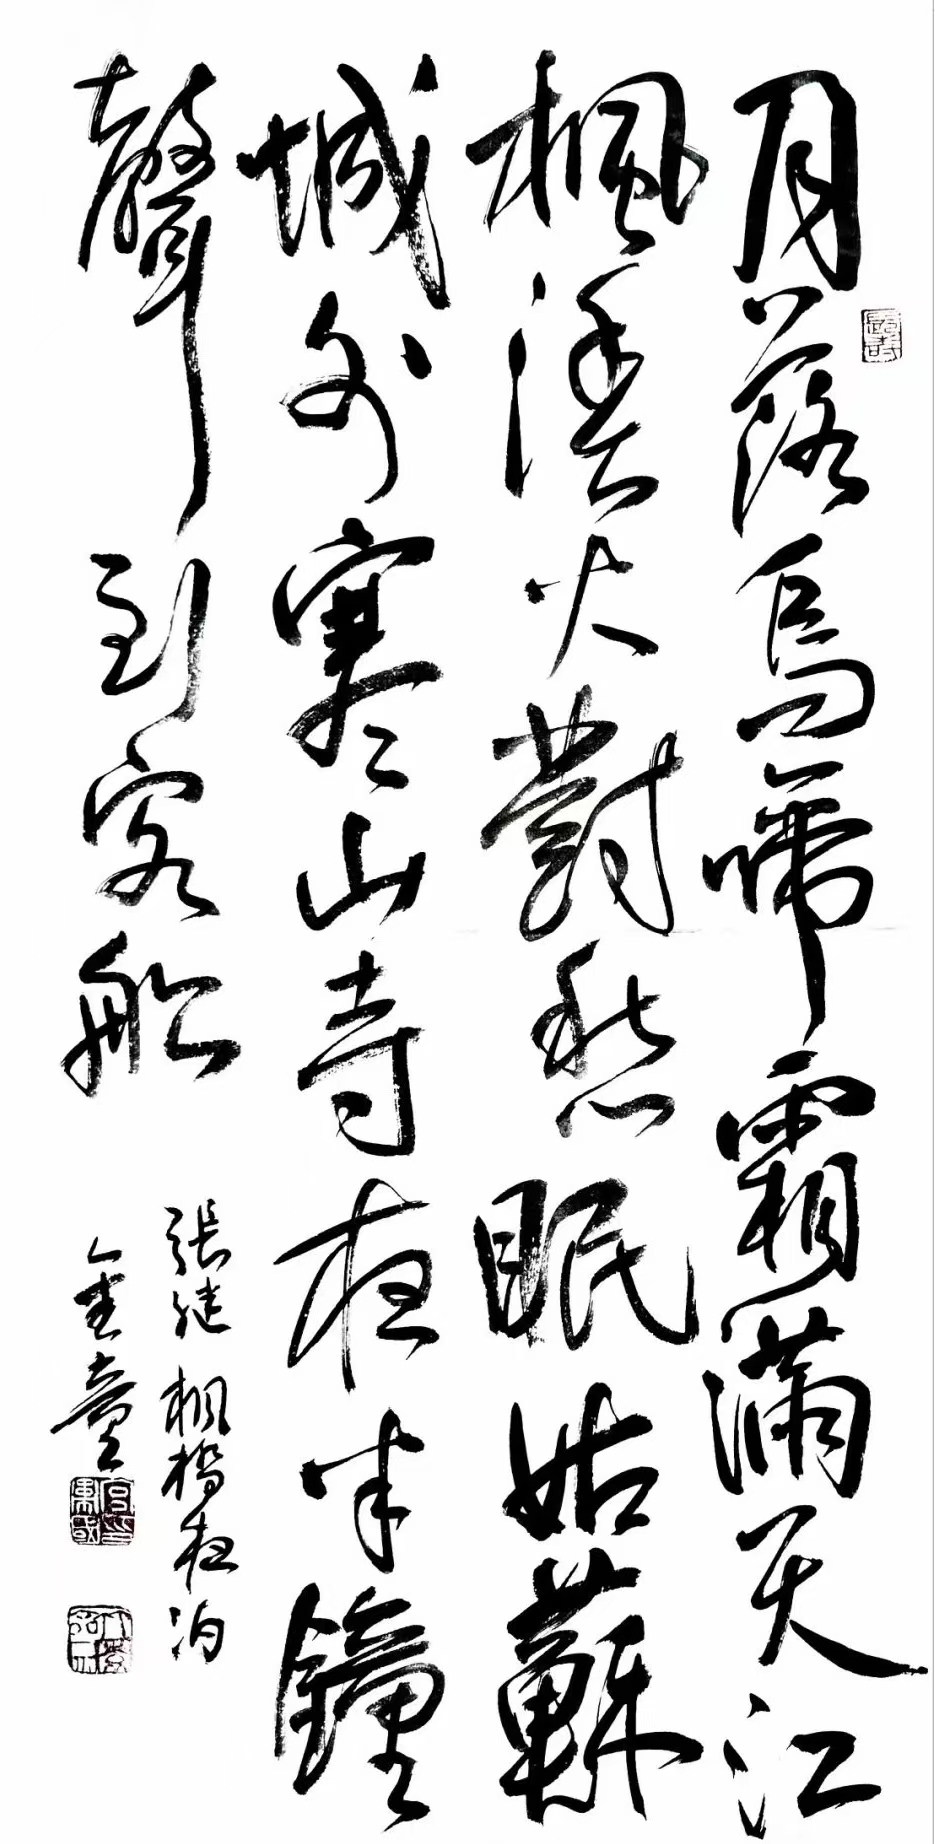 月落烏啼霜滿天江
楓漁火對愁眠姑蘇
城外寒山寺夜半鐘
聲到客船
張继 楓橋夜泊
金童